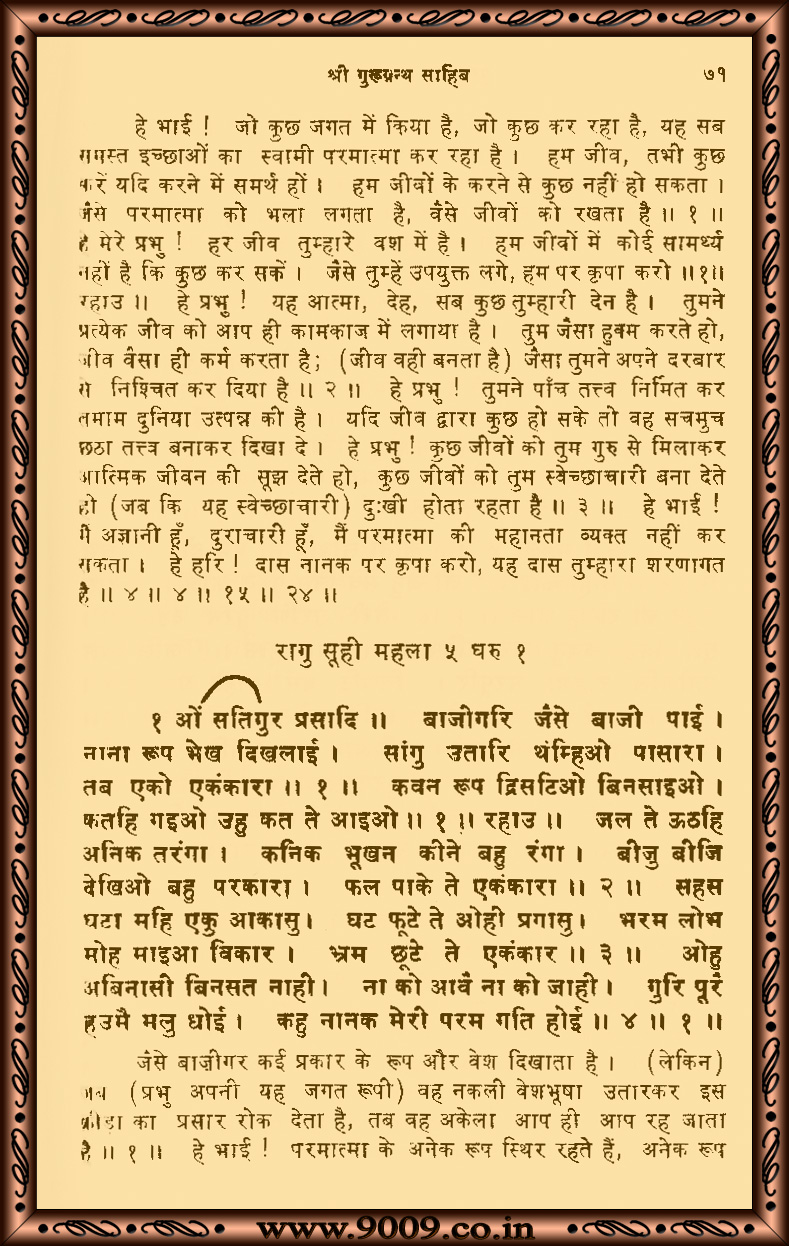 श्री गुरूग्रन्थ साहिब ७१
हे भाई ! जो कुछ जगत में किया है, जो कुछ कर रहा है, यह सब
समस्त इच्छाओं का स्वामी परमात्मा कर रहा है । हम जीव, तभी कुछ
करें यदि करने में समर्थ हों । हम जीवों के करने से कुछ नहीं हो सकता ।
जैसे परमात्मा को भला लगता है, वैसे जीवों को रखता है ॥ १ ॥
हे मेरे प्रभु ! हर जीव तुम्हारे वश में है । हम जीवों में कोई सामर्थ्य
नहीं है कि कुछ कर सकें । जैसे तुम्हें उपयुक्त लगे, हम पर कृपा करो ॥१॥
रहाउ ॥ हे प्रभु ! यह आत्मा, देह, सब कुछ तुम्हारी देन है । तुमने
प्रत्येक जीव को आप ही कामकाज में लगाया है । तुम जैसा हुक्म करते हो,
जीव वैसा ही कर्म करता है; (जीव वही बनता है) जैसा तुमने अपने दरबार
से निश्चित कर दिया है ॥ २ ॥ हे प्रभु ! तुमने पाँच तत्त्व निर्मित कर
तमाम दुनिया उत्पन्न की है । यदि जीव द्वारा कुछ हो सके तो वह सचमुच
छठा तत्त्व बनाकर दिखा दे । हे प्रभु ! कुछ जीवों को तुम गुरु से मिलाकर
आत्मिक जीवन की सूझ देते हो, कुछ जीवों को तुम स्वेच्छाचारी बना देते
हो (जब कि यह स्वेच्छाचारी) दुःखी होता रहता है ॥ ३ ॥ हे भाई !
मैं अज्ञानी हूँ, दुराचारी हूँ, मैं परमात्मा की महानता व्यक्त नहीं कर
सकता । हे हरि ! दास नानक पर कृपा करो, यह दास तुम्हारा शरणागत
है ॥ ४ ॥ ४ ॥ १५ ॥ २४ ॥
रागु सूही महला ५ घरु १
१ ओं सतिगुर प्रसादि ॥ बाजीगरि जैसे बाजी पाई ।
नाना रूप भेख दिखलाई । सांगु उतारि थंम्हिओ पासारा ।
तब एको एकंकारा ॥ १ ॥ कवन रूप द्रिसटिओ बिनसाइओ ।
कतहि गइओ उहु कत ते आइओ ॥ १ ॥ रहाउ ॥ जल ते ऊठहि
अनिक तरंगा । कनिक भूखन कीने बहु रंगा । बीजु बीजि
देखिओ बहु परकारा । फल पाके ते एकंकारा ॥ २ ॥ सहस
घटा महि एकु आकासु । घट फूटे ते ओही प्रगासु । भरम लोभ
मोह माइआ विकार । भ्रम छूटे ते एकंकार ॥ ३ ॥ ओहु
अबिनासी बिनसत नाही । ना को आवै ना को जाही । गुरि पूरै
हउमै मलु धोई । कहु नानक मेरी परम गति होई ॥ ४ ॥ १ ॥
जैसे बाज़ीगर कई प्रकार के रूप और वेश दिखाता है । (लेकिन)
जब (प्रभु अपनी यह जगत रूपी) वह नकली वेशभूषा उतारकर इस
क्रीड़ा का प्रसार रोक देता है, तब वह अकेला आप ही आप रह जाता
है ॥ १ ॥ हे भाई ! परमात्मा के अनेक रूप स्थिर रहते हैं, अनेक रूप
www.9009.co.in